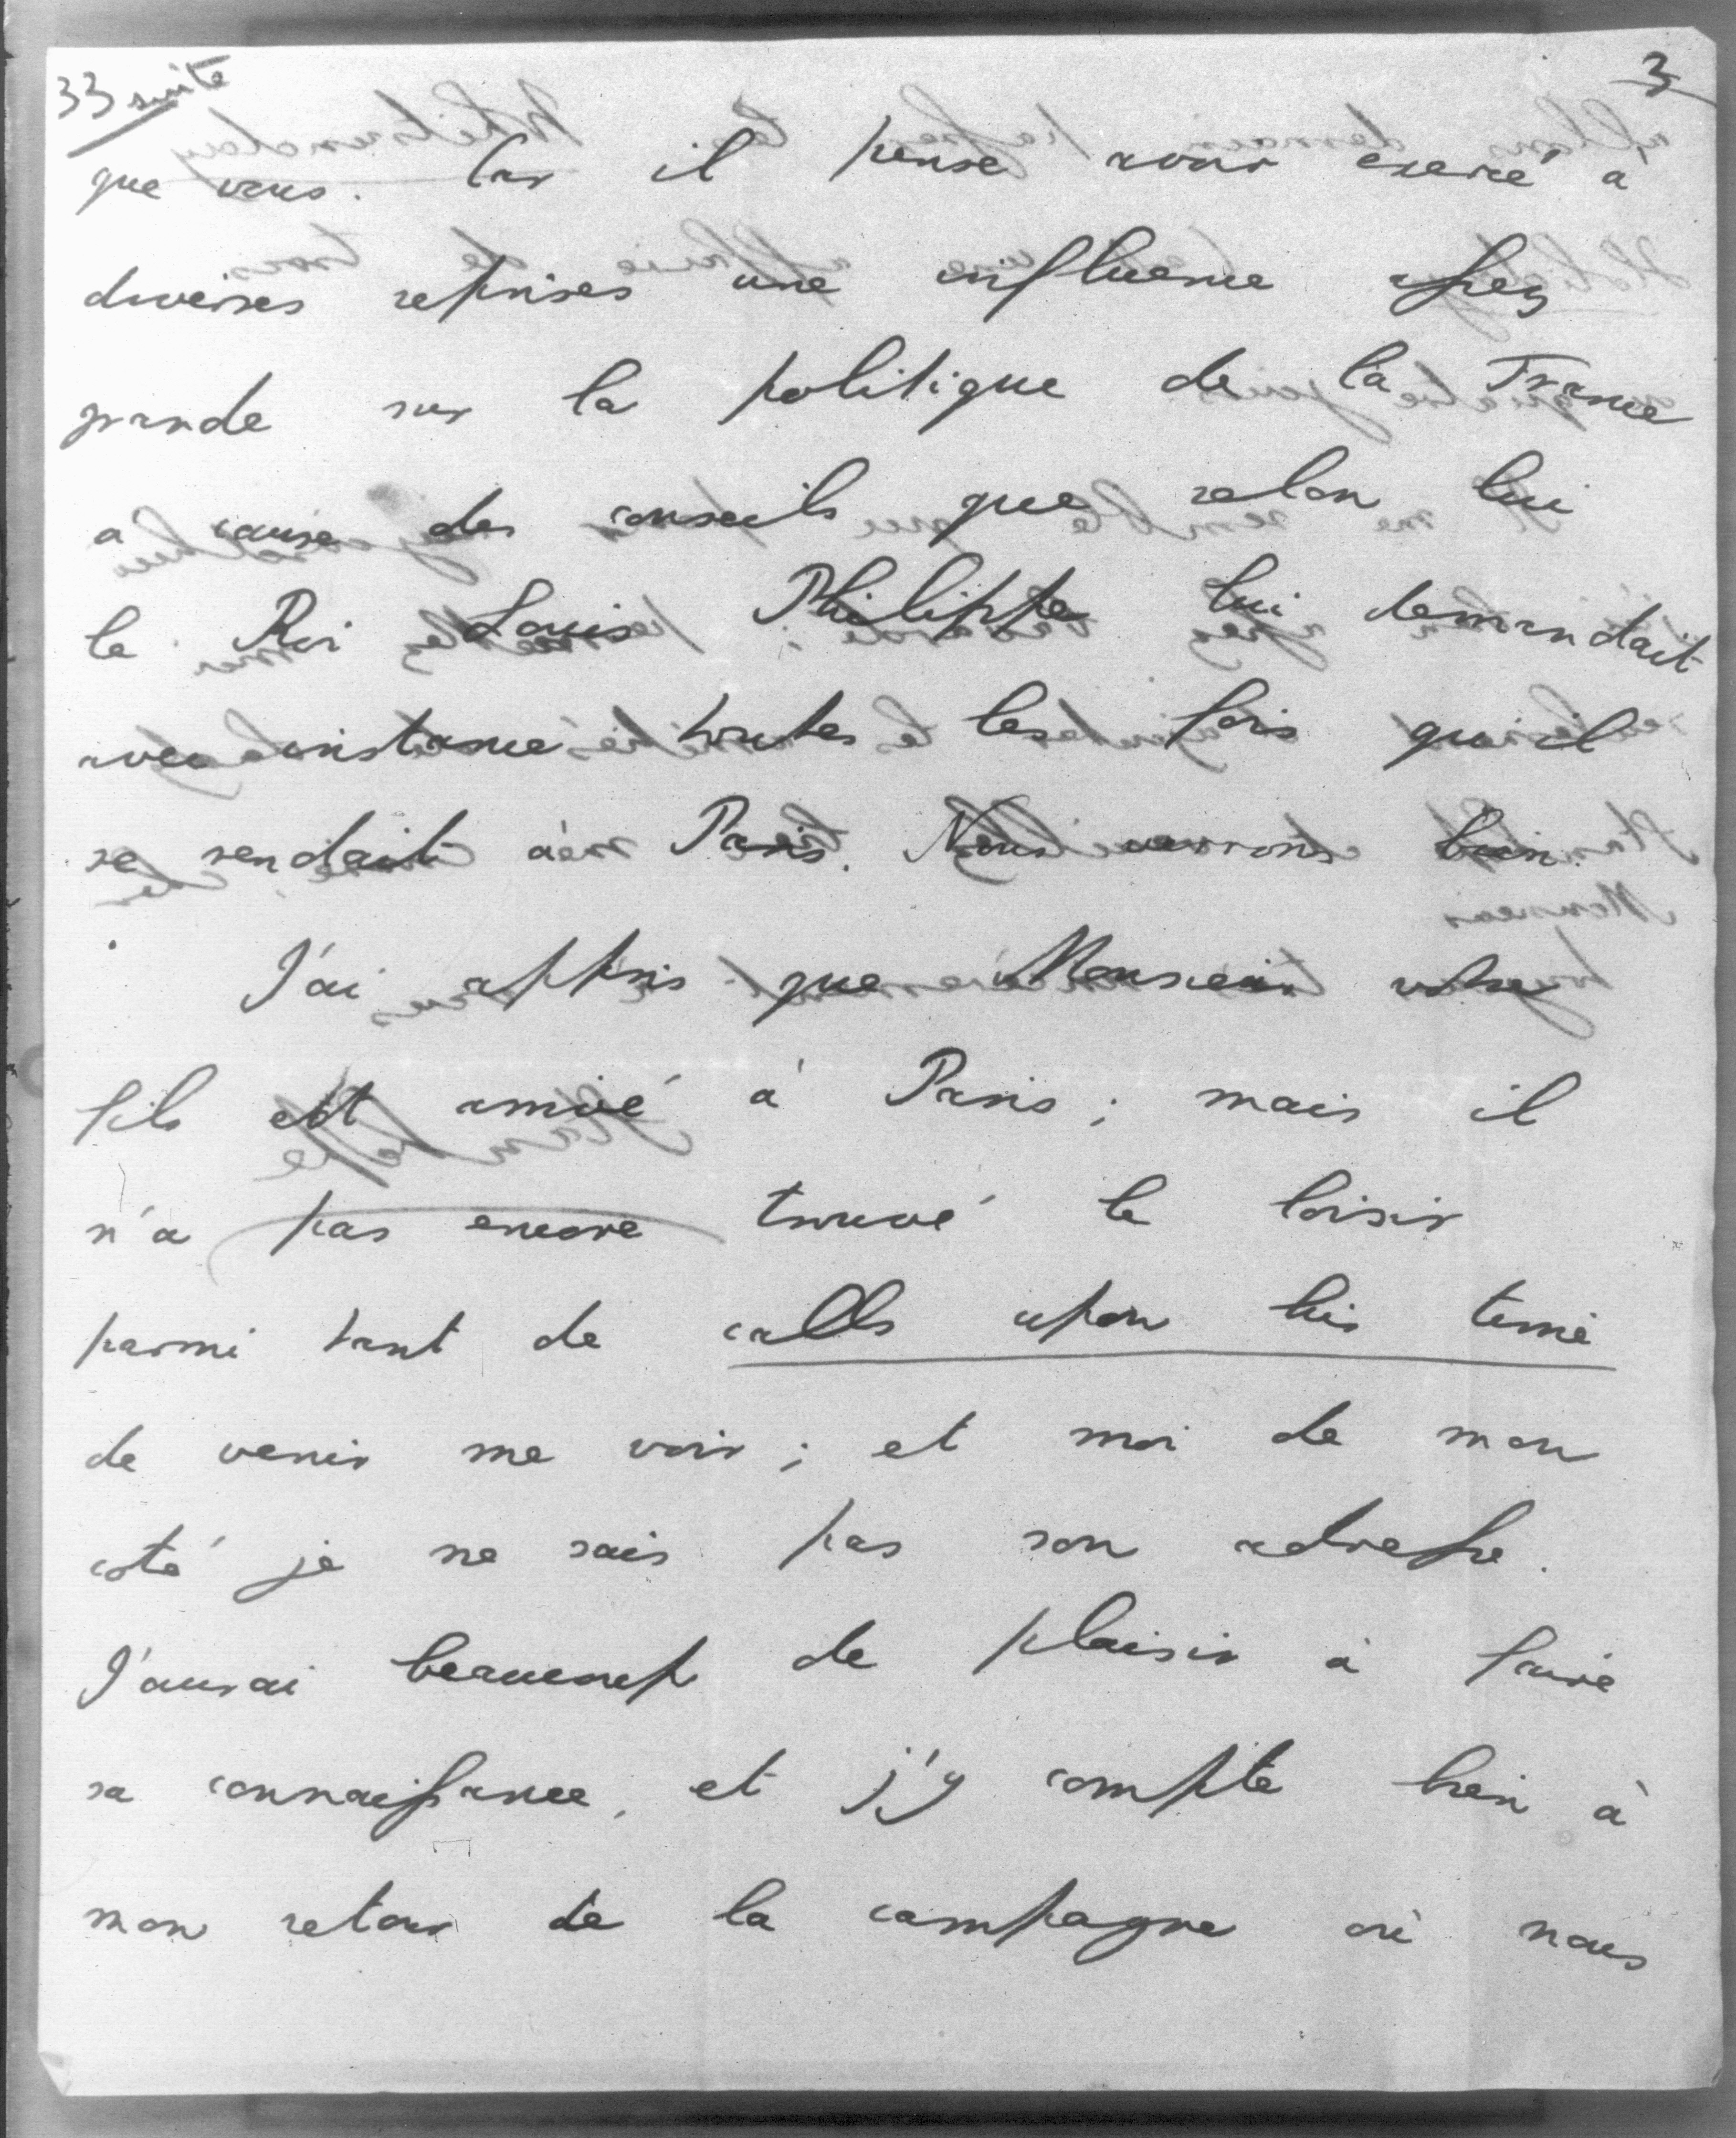 33 suite
3
que vous. Car il pense avoir exercé à
diverses reprises une influence assez
grande sur la politique de la France
a cause des conseils que selon lui
le Roi Louis Philippe lui demandait
avec instance toutes les fois qu'il
se rendait à Paris. Nous verrons bien.
J'ai appris que Monsieur votre
fils est arrivé à Paris ; mais il
n'a pas encore trouvé le loisir
parmi tant de calls upon his time
de venir me voir ; et moi de mon
coté je ne sais pas son adresse.
J'aurai beaucoup de plaisir à faire
sa connaissance, et j'y compte bien à
mon retour de la campagne où nous